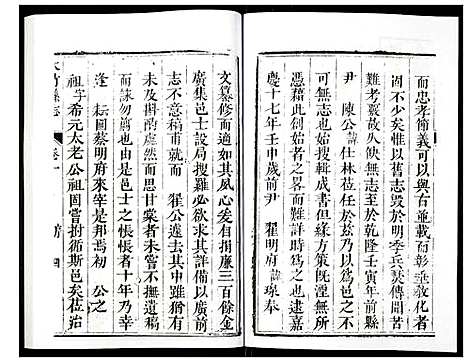 而忠孝節義可以與古並載而彰垂教化者
固不少矣惟以舊志罹於明季兵燹傳聞苦
難考覈故久佚無志於乾隆壬寅年前縣
尹 陳公諱仕林蒞任於茲乃以為邑不可無
憑藉此創始搜輯成書但緣方策旣湮無
為之此創始者之畧而難詳時為之也逮嘉
慶十七年壬申歲前尹 瞿明府諱瑔奉
文纂修而適如其夙心爰有捐廉三百餘金
廣集邑士設局搜羅必欲求其廣前
志不意稿甫就而 瞿公遽去其中雖猶有
未及斟酌盡善而思甘棠者未嘗不撫遺稿
而誅勿翦也由是邑士之悵悵者十年乃幸
逢 耘圃蔡明府來宰是邦焉初 公之
祖 希元太老公祖固嘗拊循斯邑矣蒞治
大竹縣志
卷十
序
四